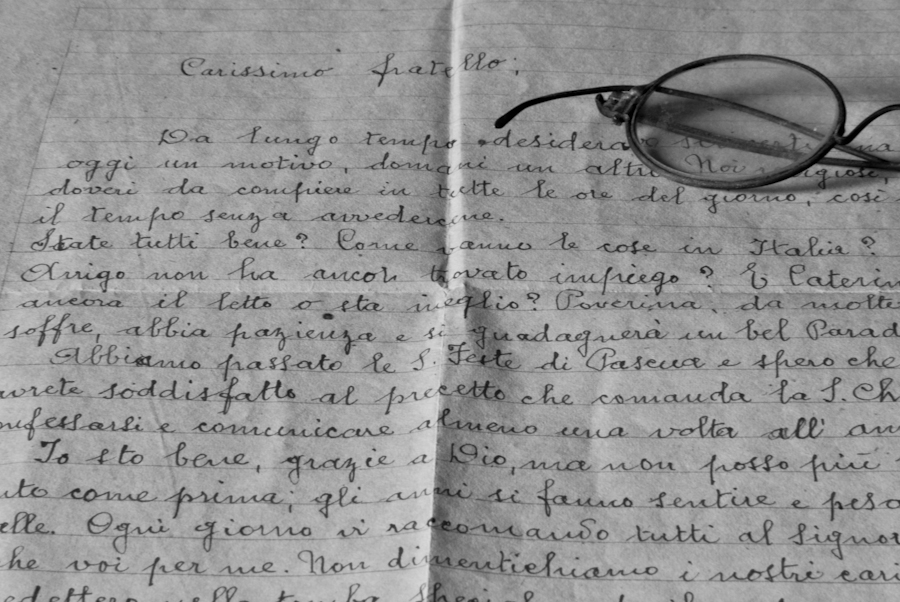 Carissimo fratello;
Da lungo tempo desiderav
oggi un motivo, domani un altro Noi
doveri da compiere in tutte le ore del giorno, così
il tempo senza avvedercene.
State tutti bene? Come vanno le cose in Italia?
Arrigo non ha ancora trovato impiego? E Caterin
ancora il letto o sta meglio? Poverina, da molte
soffre, abbia pazienza e si guadagnerà un bel Parad
Abbiamo passato le S. Feste di Pascua e spero che
avrete soddisfatto al precetto che comanda la S. Ch
onfessarsi e comunicare almeno una volta all' an
Io sto bene, grazie a Dio, ma non posso più
uto come prima; gli anni si fanno sentire e peso
elle. Ogni giorno vi raccomando tutti al Signor
he voi per me. Non dimentichiamo i nostri cari
nella tomba